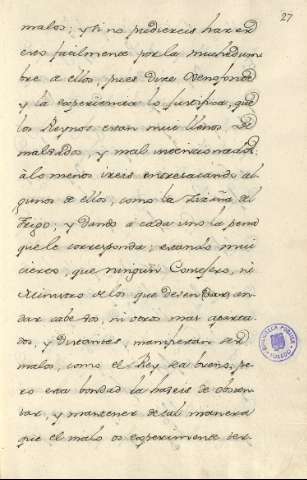 27
malos; y si no pudiereis hacer
eso facilmente por la muchedum
bre de ellos, pues dice Xenofonte
y la experiencia lo justifica, que
los Reynos estan mui llenos de
malvados, y mal intencionados:
à lo menos ireis entresacando al
gunos de ellos, como la zizaña del
trigo; y dando a cada uno la pena
que le corresponda; estando mui
cierto, que ningun Consejero, ni
Ministro de los que deven dar, an
dar cabe vos, ni otros mas aparta
dos, y distantes, manifestan ser
malos, como el Rey sea bueno; pe
ro esta bondad la haveis de obser
var, y mantener de tal manera
que el malo os experimente ser-
BIBLIOTECA PUBLICA
TOLEDO